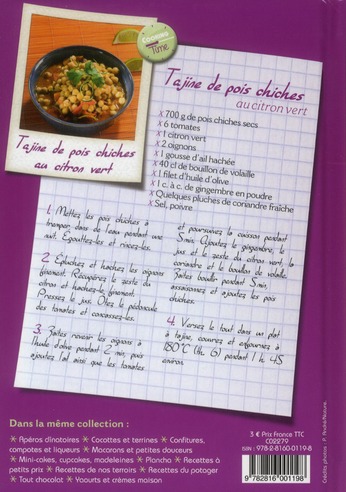 COOKING
Time
Tajine de pois chiches
au citron vert
Tajine de pois chiches
au citron vert
x 700 g de pois chiches secs
x 6 tomates
x 1 citron vert
x 2 oignons
x 1 gousse d'ail hachée
x 40 cl de bouillon de volaille
x 1 filet d'huile d'olive
x 1 c. à c. de gingembre en poudre
x Quelques pluches de coriandre fraîche
x Sel, poivre
1. Mettez les pois chiches à
tremper dans de l'eau pendant une
nuit. Égouttez-les et rincez-les.
2. Épluchez et hachez les oignons
finement. Récupérez le zeste du
citron et hachez-le finement.
Pressez le jus. Ôtez le pédoncule
des tomates et concassez-les.
3. Faites revenir les oignons dans
l'huile d'olive pendant 2 min, puis
ajoutez l'ail ainsi que les tomates
et poursuivez la cuisson pendant
5 min. Ajoutez le gingembre, le
jus et le zeste du citron vert, la
coriandre et le bouillon de volaille.
Faites bouillir pendant 5 min,
assaisonnez et ajoutez les pois
chiches.
4. Versez le tout dans un plat
à tajine, couvrez et enfournez à
180°C (th. 6) pendant 1 h 45
environ.
Dans la même collection :
* Apéros dînatoires * Cocottes et terrines * Confitures,
compotes et liqueurs * Macarons et petites douceurs
* Mini-cakes, cupcakes, madeleines * Plancha * Recettes à
petits prix * Recettes de nos terroirs * Recettes du potager
* Tout chocolat * Yaourts et crèmes maison
3 € Prix France TTC
CO2279
ISBN : 978-2-8160-0119-8
9 782816 001198
Crédits photos : P. André/Nature.